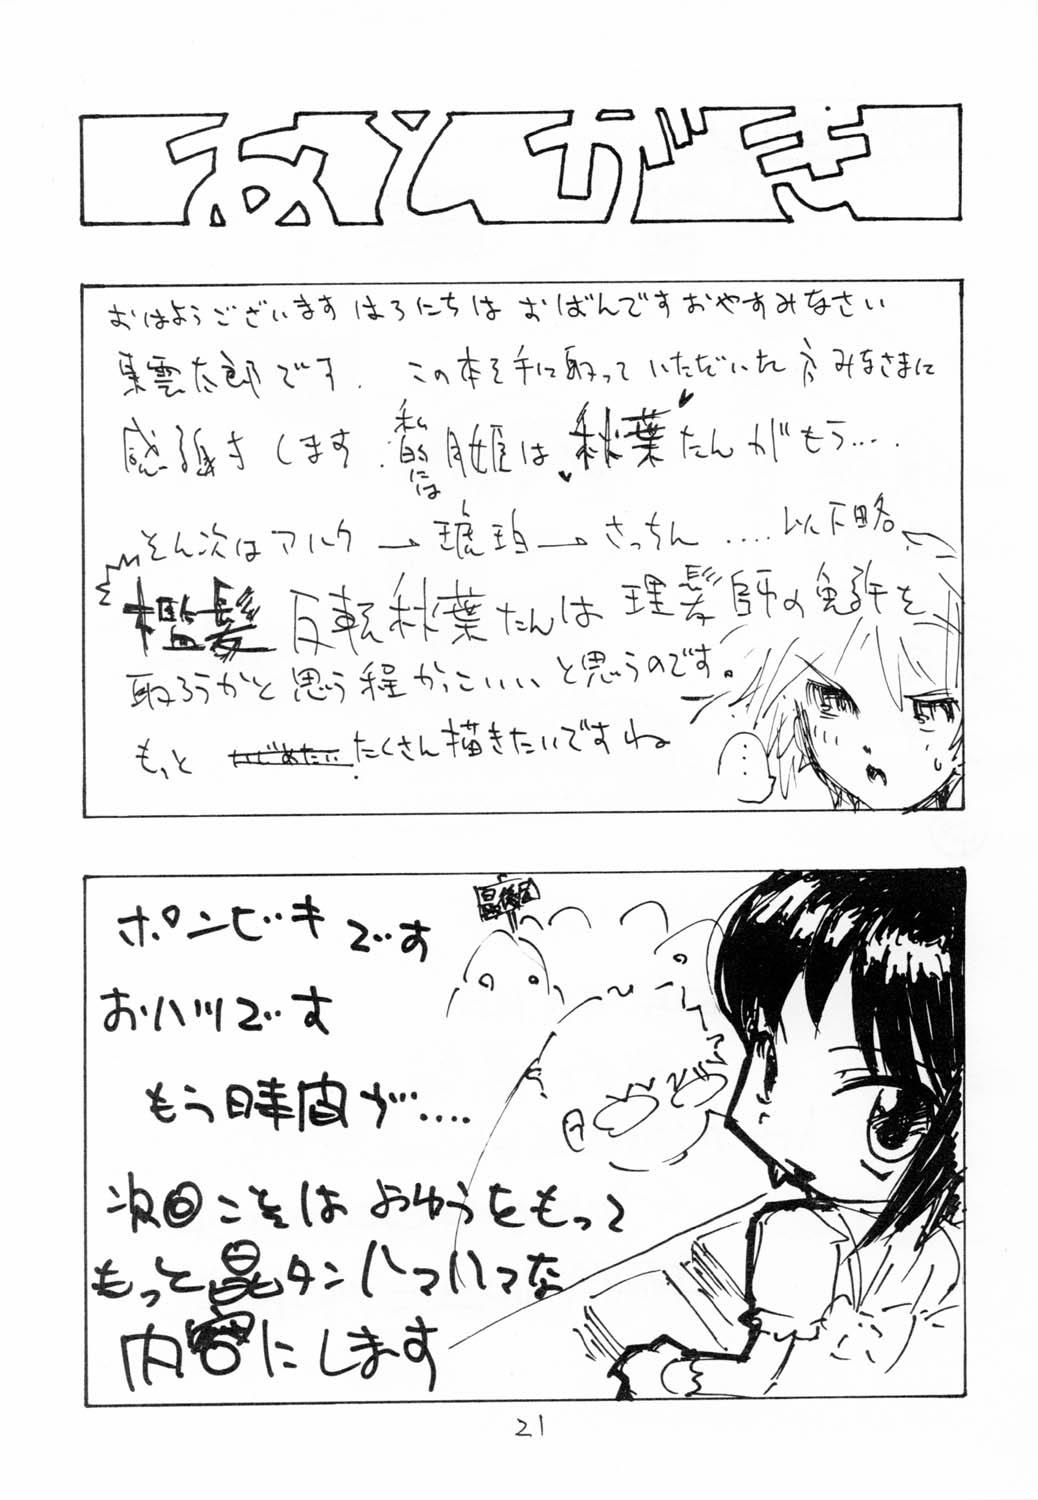 あとがき
おはようございます はろにちは おばんです おやすみなさい
東雲太郎です. この本を手に取っていただいた方みなさまに
感謝します. 私的には月姫は秋葉たんがもう….
そん次はアルク→琥珀→さっちん ….以下略
檻髪 反転秋葉たんは理髪師の免許を
取ろうかと思う程かっこいいと思うのです。
もっと たくさん描きたいですね
…
ポンビキです
おハツです
最後尾
もう時間が….
次回こそはよゆうをもって
もっと晶タンハァハァな
内容にします
21